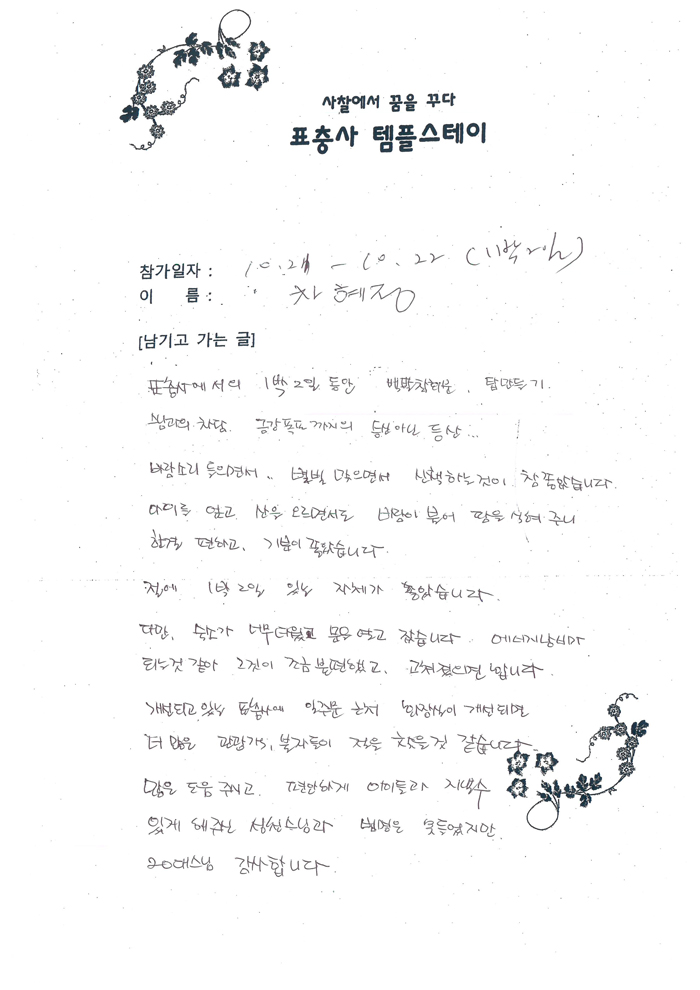 사찰에서 꿈을 꾸다
표충사 템플스테이
참가일자 : 10.21 - 10.22 (1박2일)
이 름 : 차혜정
[남기고 가는 글]
표충사에서의 1박2일 동안 탑만들기.
스님과의 차담. 금강폭포까지의 등산아닌 등산...
바람소리 들으면서.. 별빛 맞으면서 산책하는것이 참 좋았습니다.
아이를 업고 산을 오르면서도 바람이 불어 땀을 식혀 주니
한결 편하고, 기분이 좋았습니다.
절에 1박2일 있는 자체가 좋았습니다.
다만, 숙소가 너무더웠고 문을 열고 잤습니다. 에너지낭비가
되는것 같아 그것이 조금 불편했고, 고쳐졌으면 합니다.
개선되고 있는 표충사에 일주문 근처 화장실이 개선되면
더 많은 관광객, 불자들이 절을 찾을것 같습니다.
많은 도움 주시고. 편안하게 아이들과 지낼수
있게 해주신 스님과 법명은 못들었지만
20대스님 감사합니다.